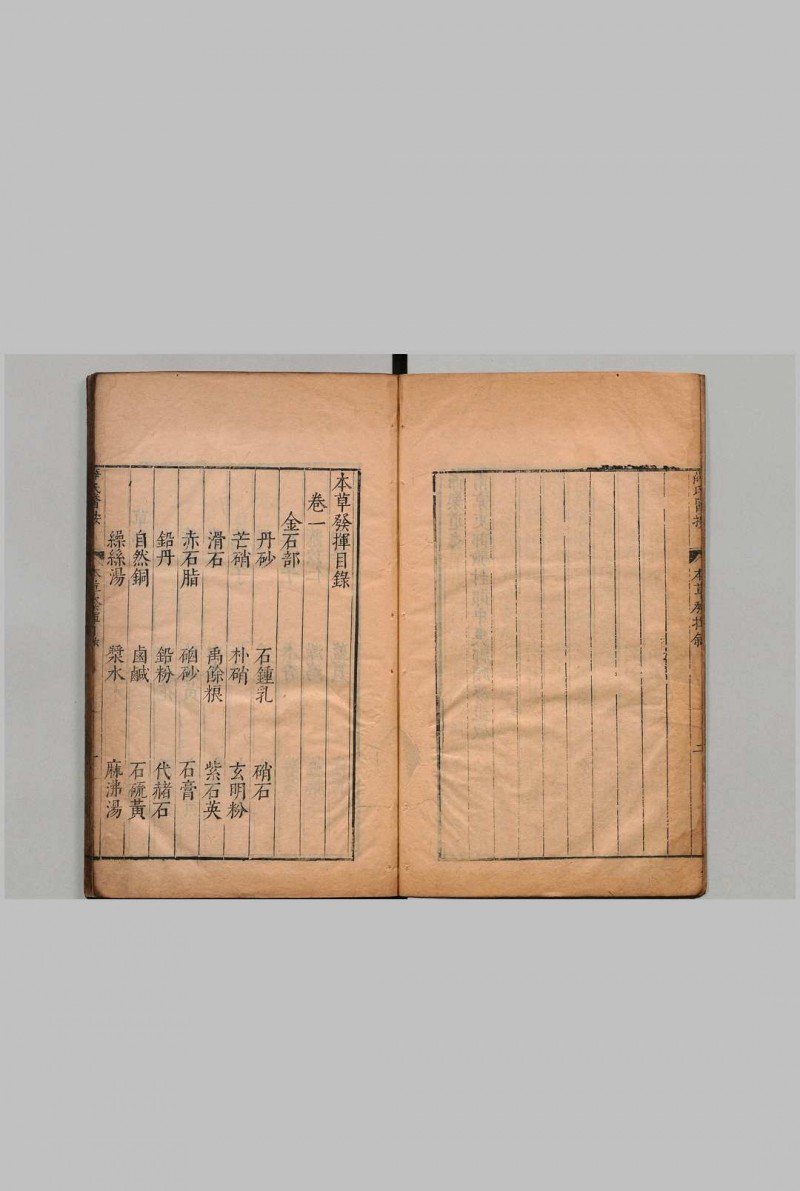 本草發揮目錄
卷一
金石部
丹砂 石鍾乳 硝石
芒硝 朴硝 玄明粉
滑石 禹餘粮 紫石英
赤石脂 硇砂 石膏
鉛丹 鉛粉 代赭石
自然銅 鹵鹹 石硫黃
繰絲湯 漿水 麻沸湯